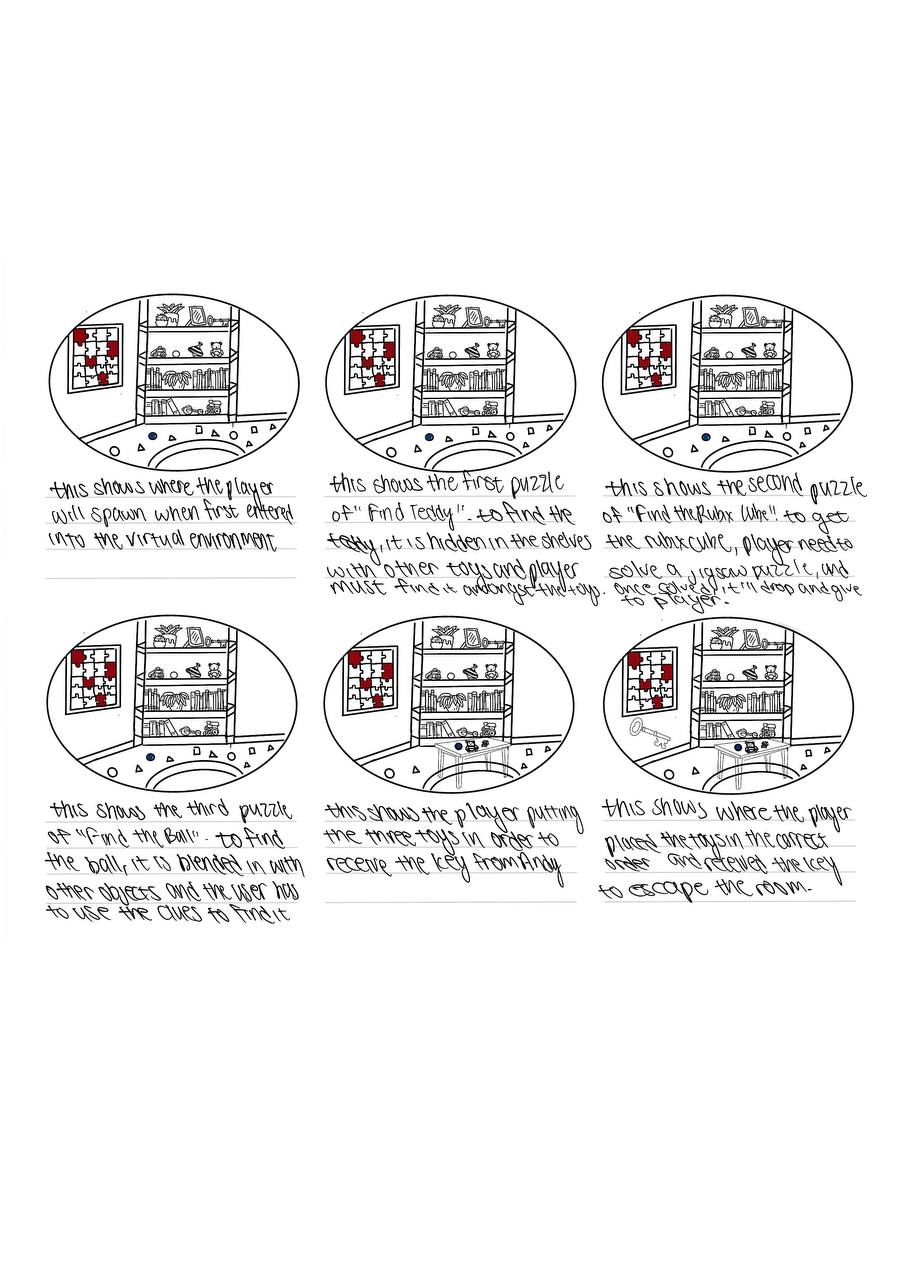 this shows where the player
will spawn when first entered
into the virtual environment
this shows the first puzzle
of "Find Teddy". to find the
teddy, it is hidden in the shelves
with other toys and player
must find it amongst the toys.
this shows the second puzzle
of "Find the Rubix Cube". to get
the rubix cube, player need to
solve a jigsaw puzzle, and
once solved, it'll drop and give
to player.
this shows the third puzzle
of "Find the Ball". to find
the ball, it is blended in with
other objects and the user has
to use the clues to find it
this shows the player putting
the three toys in order to
receive the key from Andy
this shows where the player
placed the toys in the correct
order and received the key
to escape the room.